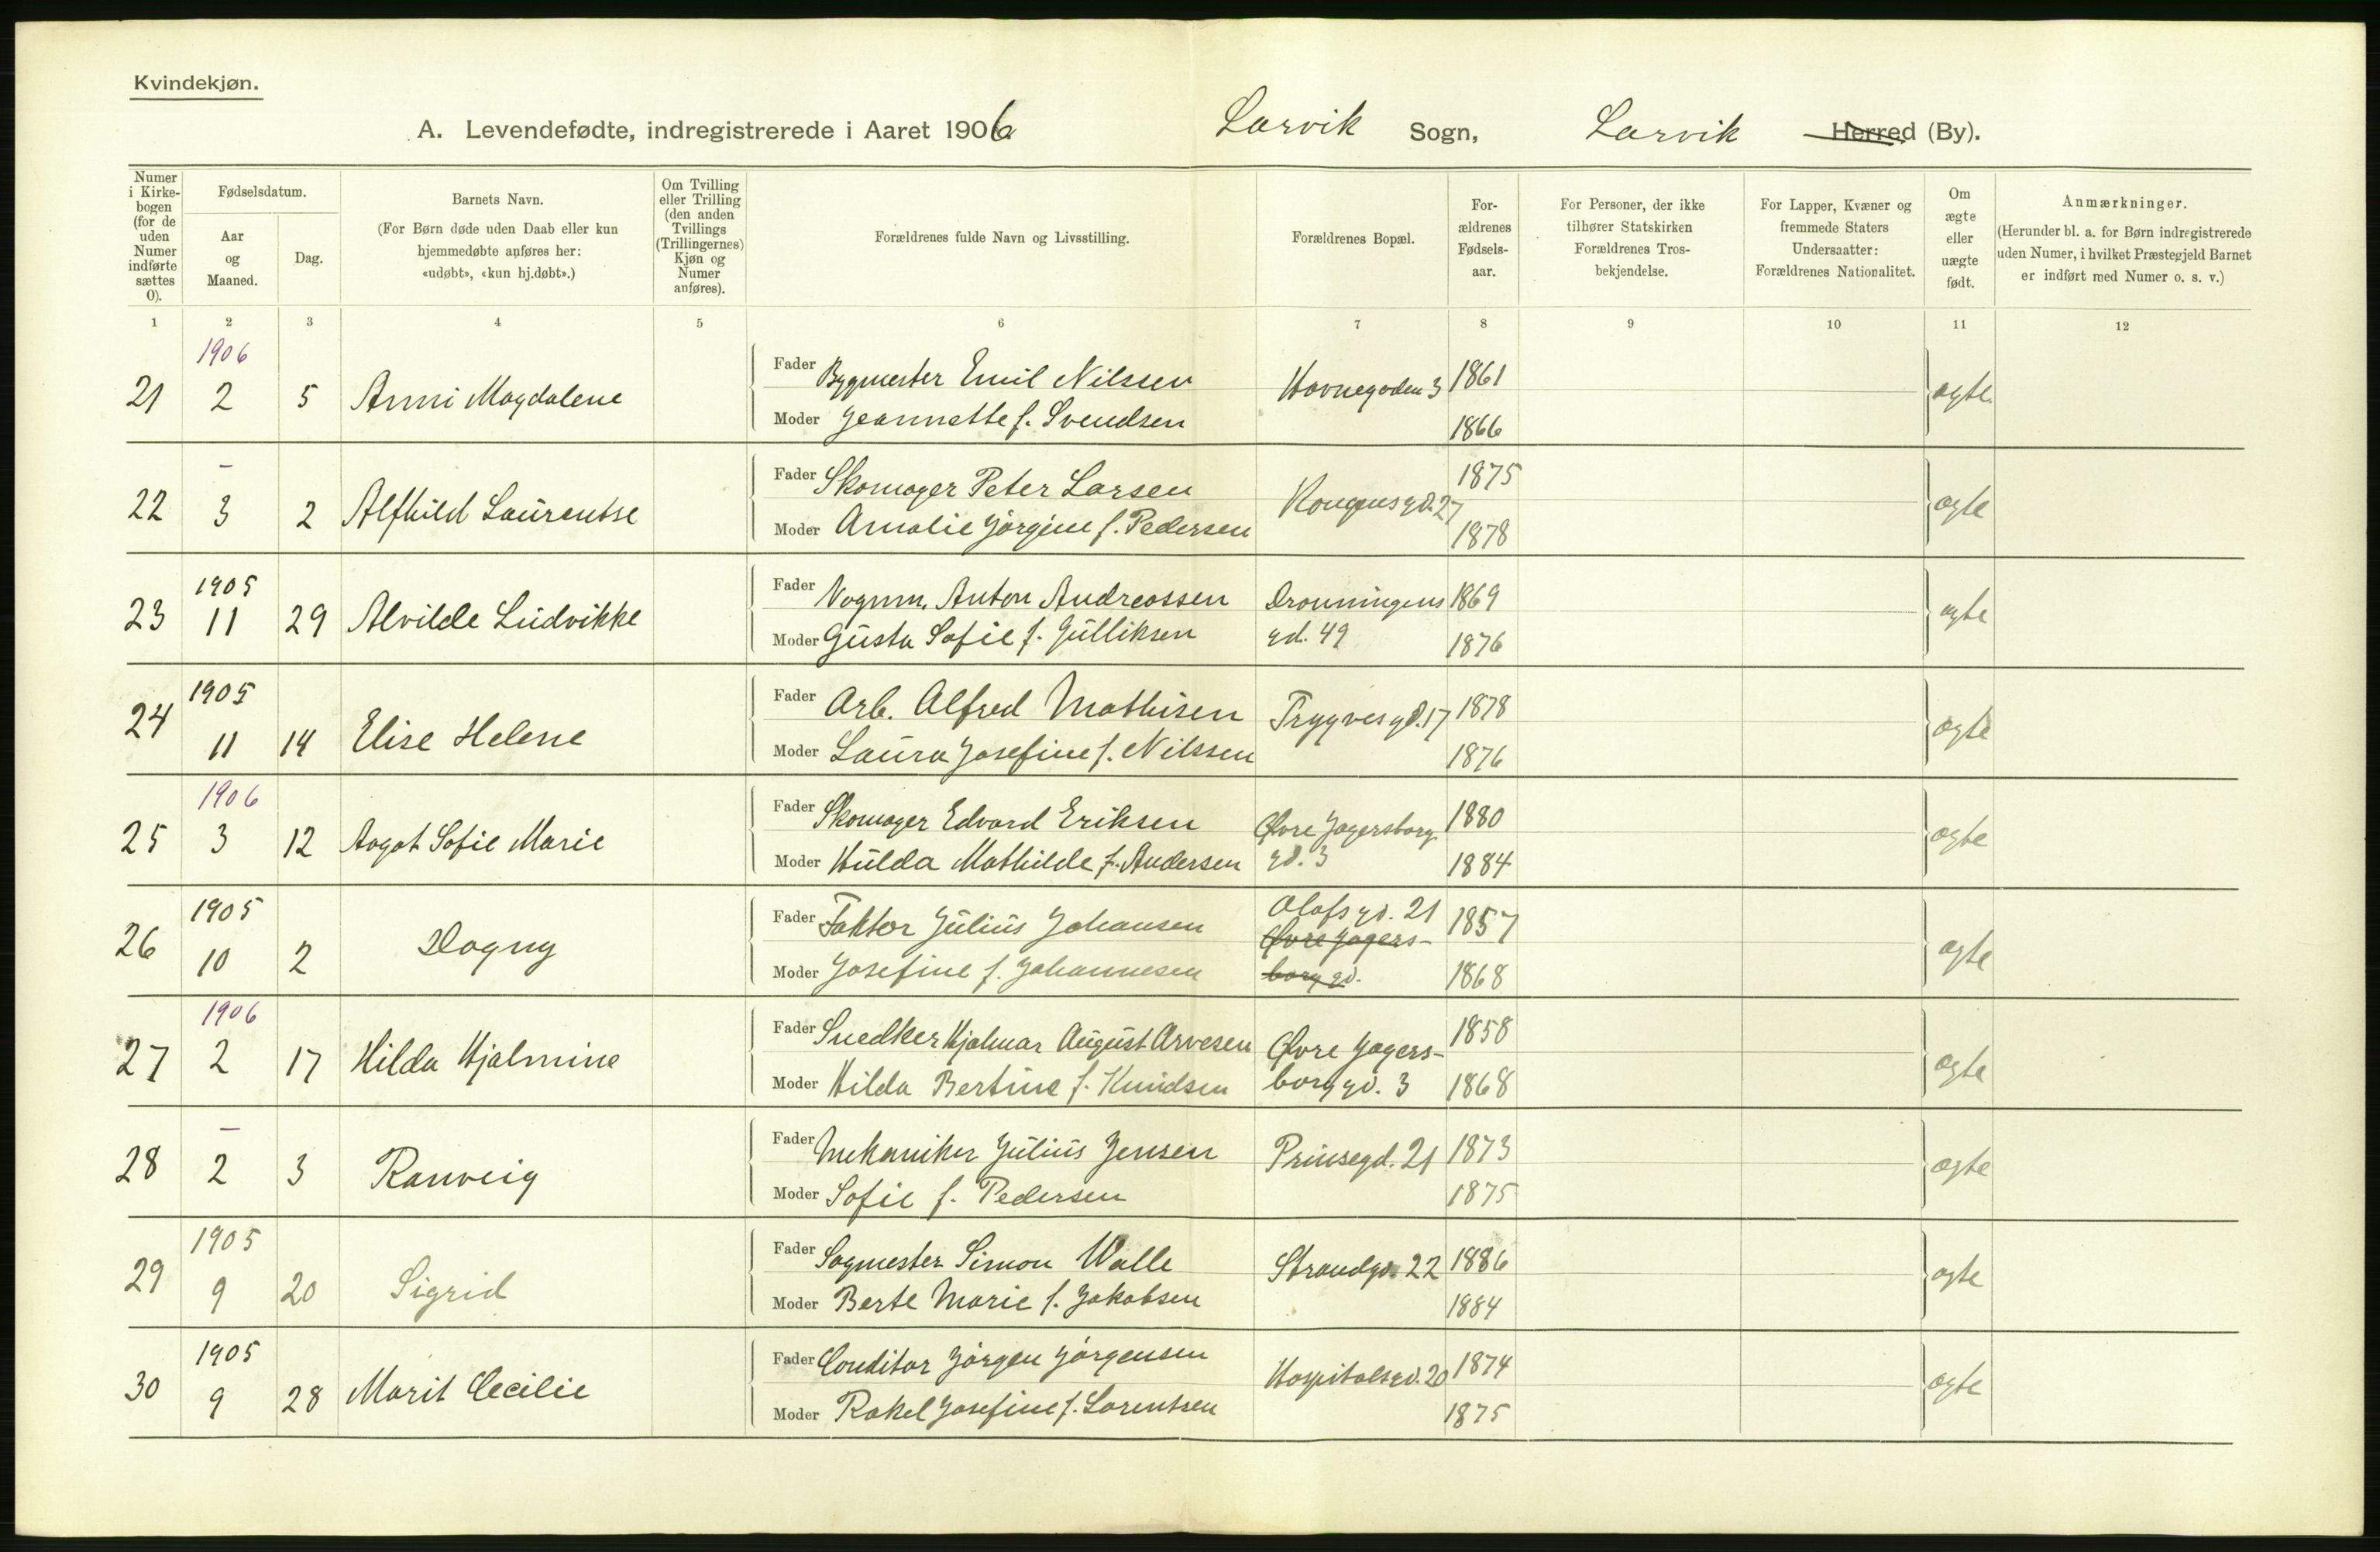 Kvindekjøn.
A. Levendefødte, indregistrerede i Aaret 1906 Larvik Sogn, Larvik Herred (By).
Numer i Kirkebogen (for de uden Numer indførte sættes 0).
Fødselsdatum.
Aar og Maaned.
Dag.
Barnets Navn.
(For Børn døde uden Daab eller kun hjemmedøbte anføres her: «udøbt», «kun hj.døbt».)
Om Tvilling eller Trilling (den anden Tvillings (Trillingernes) Kjøn og Numer anføres).
Forældrenes fulde Navn og Livsstilling.
Forældrenes Bopæl.
Forældrenes Fødselsaar.
For Personer, der ikke tilhører Statskirken Forældrenes Trosbekjendelse.
For Lapper, Kvæner og fremmede Staters Undersaatter: Forældrenes Nationalitet.
Om ægte eller uægte født.
Anmærkninger.
(Herunder bl. a. for Børn indregistrerede uden Numer, i hvilket Præstegjeld Barnet er indført med Numer o. s. v.)
1 2 3 4 5 6 7 8 9 10 11 12
1906
21 2 5 Anni Magdalene
Fader Bygmester Emil Nilssen Havnegaden 3 1861 ægte.
Moder Jeannette f. Svendsen 1866
–
22 3 2 Alfhild Laurentse
Fader Skomager Peter Larsen Kongensgd. 27 1875 ægte
Moder Amalie Jørgine f. Pedersen 1878
1905
23 11 29 Alvilde Ludvikke
Fader Vognm. Anton Andreassen Dronningens 1869 ægte
Moder Gusta Sofie f. Gulliksen gd. 49 1876
1905
24 11 14 Elise Helene
Fader Arb. Alfred Mathisen Trygvesgd. 17 1878 ægte
Moder Laura Josefine f. Nilssen 1876
1906
25 3 12 Aagot Sofie Marie
Fader Skomager Edvard Eriksen Øvre Jagersborg 1880 ægte
Moder Hulda Mathilde f. Andersen gd. 3 1884
1905
26 10 2 Dagny
Olafsgd. 21
Fader Faktor Julius Johansen Øvre Jagers- 1857 ægte
Moder Josefine f. Johannesen borg gd. 1868
1906
27 2 17 Hilda Hjalmine
Fader Snedker Hjalmar August Arvesen Øvre Jagers- 1858 ægte
Moder Hilda Bertine f. Knudsen borg gd. 3 1868
–
28 2 3 Ranveig
Fader Mekaniker Julius Jensen Prinsegd. 21 1873 ægte
Moder Sofie f. Pedersen 1875
1905
29 9 20 Sigrid
Fader Sagmester Simon Walle Strandgd. 22 1886 ægte
Moder Berte Marie f. Jakobsen 1884
1905
30 9 28 Marit Cecilie
Fader Conditor Jørgen Jørgensen Hospitalsgd. 20 1874 ægte
Moder Rakel Josefine f. Lorentsen 1875